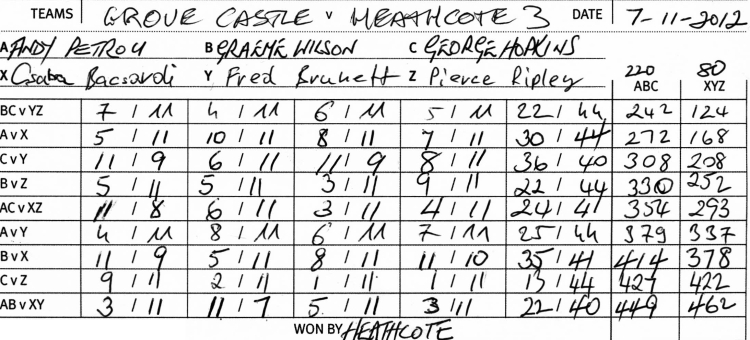 TEAMS GROVE CASTLE v HEATHCOTE 3 DATE 7-11-2012
A ANDY PETROU B GRAEME WILSON C GEORGE HOPKINS
X Csaba Bacsardi Y Fred Brunett Z Pierce Ripley 220 80
ABC XYZ
BC v YZ 7 / 11 4 / 11 6 / 11 5 / 11 22 / 44 242 124
A v X 5 / 11 10 / 11 8 / 11 7 / 11 30 / 44 272 168
C v Y 11 / 9 6 / 11 11 / 9 8 / 11 36 / 40 308 208
B v Z 5 / 11 5 / 11 3 / 11 9 / 11 22 / 44 330 252
AC v XZ 11 / 8 6 / 11 3 / 11 4 / 11 24 / 41 354 293
A v Y 4 / 11 8 / 11 6 / 11 7 / 11 25 / 44 379 337
B v X 11 / 9 5 / 11 8 / 11 11 / 10 35 / 41 414 378
C v Z 9 / 11 2 / 11 1 / 11 1 / 11 13 / 44 427 422
AB v XY 3 / 11 11 / 7 5 / 11 3 / 11 22 / 40 449 462
WON BY HEATHCOTE